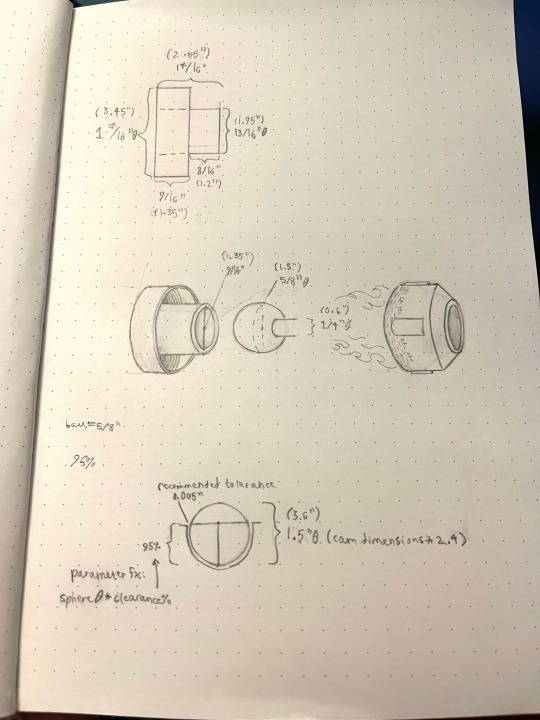 (2.55")
17/16"
(3.45")
1 7/16"θ
(1.95")
13/16"θ
8/16"
(1.2")
9/16"
(1.35")
(1.35")
9/16"
(1.5")
5/8"θ
(0.6")
1/4"θ
ball=5/8"
95%
recommended tolerance
0.005"
(3.6")
1.5"θ (cam dimensions * 2.4)
95%
parameter fx:
sphere θ * clearance%